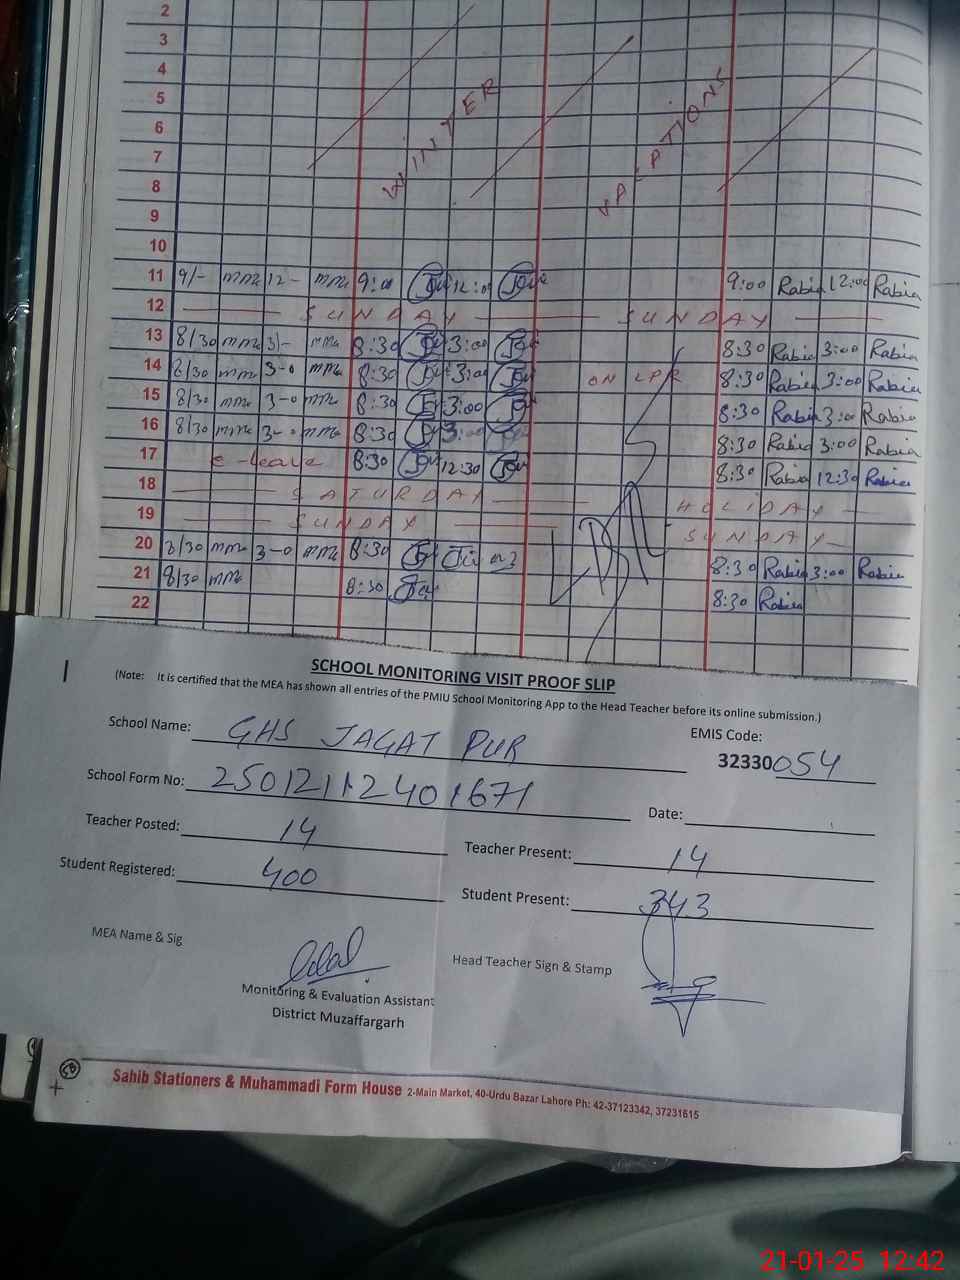 2
3
4
5
6
7
8
9
10
WINTER VACATIONS
11 9/- mm 12- mm 9:00 12:00 9:00 Rabia 12:00 Rabia
12 SUNDAY SUNDAY
13 8/30 mm 3- mm 8:30 3:00 8:30 Rabia 3:00 Rabia
14 8/30 mm 3-0 mm 8:30 3:00 ON LPR 8:30 Rabia 3:00 Rabia
15 8/30 mm 3-0 mm 8:30 3:00 8:30 Rabia 3:00 Rabia
16 8/30 mm 3-0 mm 8:30 3:00 8:30 Rabia 3:00 Rabia
17 e-leave 8:30 12:30 8:30 Rabia 12:30 Rabia
18 SATURDAY HOLIDAY
19 SUNDAY SUNDAY
20 8/30 mm 3-0 mm 8:30 8:30 Rabia 3:00 Rabia
21 8/30 mm 8:30 8:30 Rabia
22
SCHOOL MONITORING VISIT PROOF SLIP
(Note: It is certified that the MEA has shown all entries of the PMIU School Monitoring App to the Head Teacher before its online submission.)
School Name: GHS JAGAT PUR EMIS Code:
32330054
School Form No: 25012112401671 Date:
Teacher Posted: 14 Teacher Present: 14
Student Registered: 400 Student Present: 343
MEA Name & Sig Head Teacher Sign & Stamp
Monitoring & Evaluation Assistant
District Muzaffargarh
Sahib Stationers & Muhammadi Form House 2-Main Market, 40-Urdu Bazar Lahore Ph: 42-37123342, 37231615
21-01-25 12:42